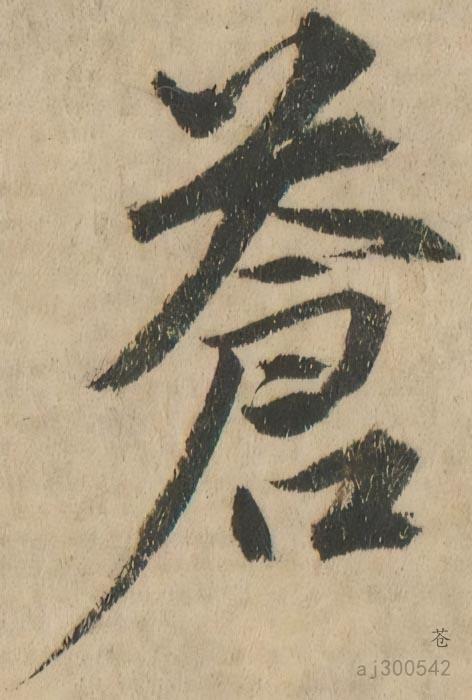 蒼
苍
aj300542